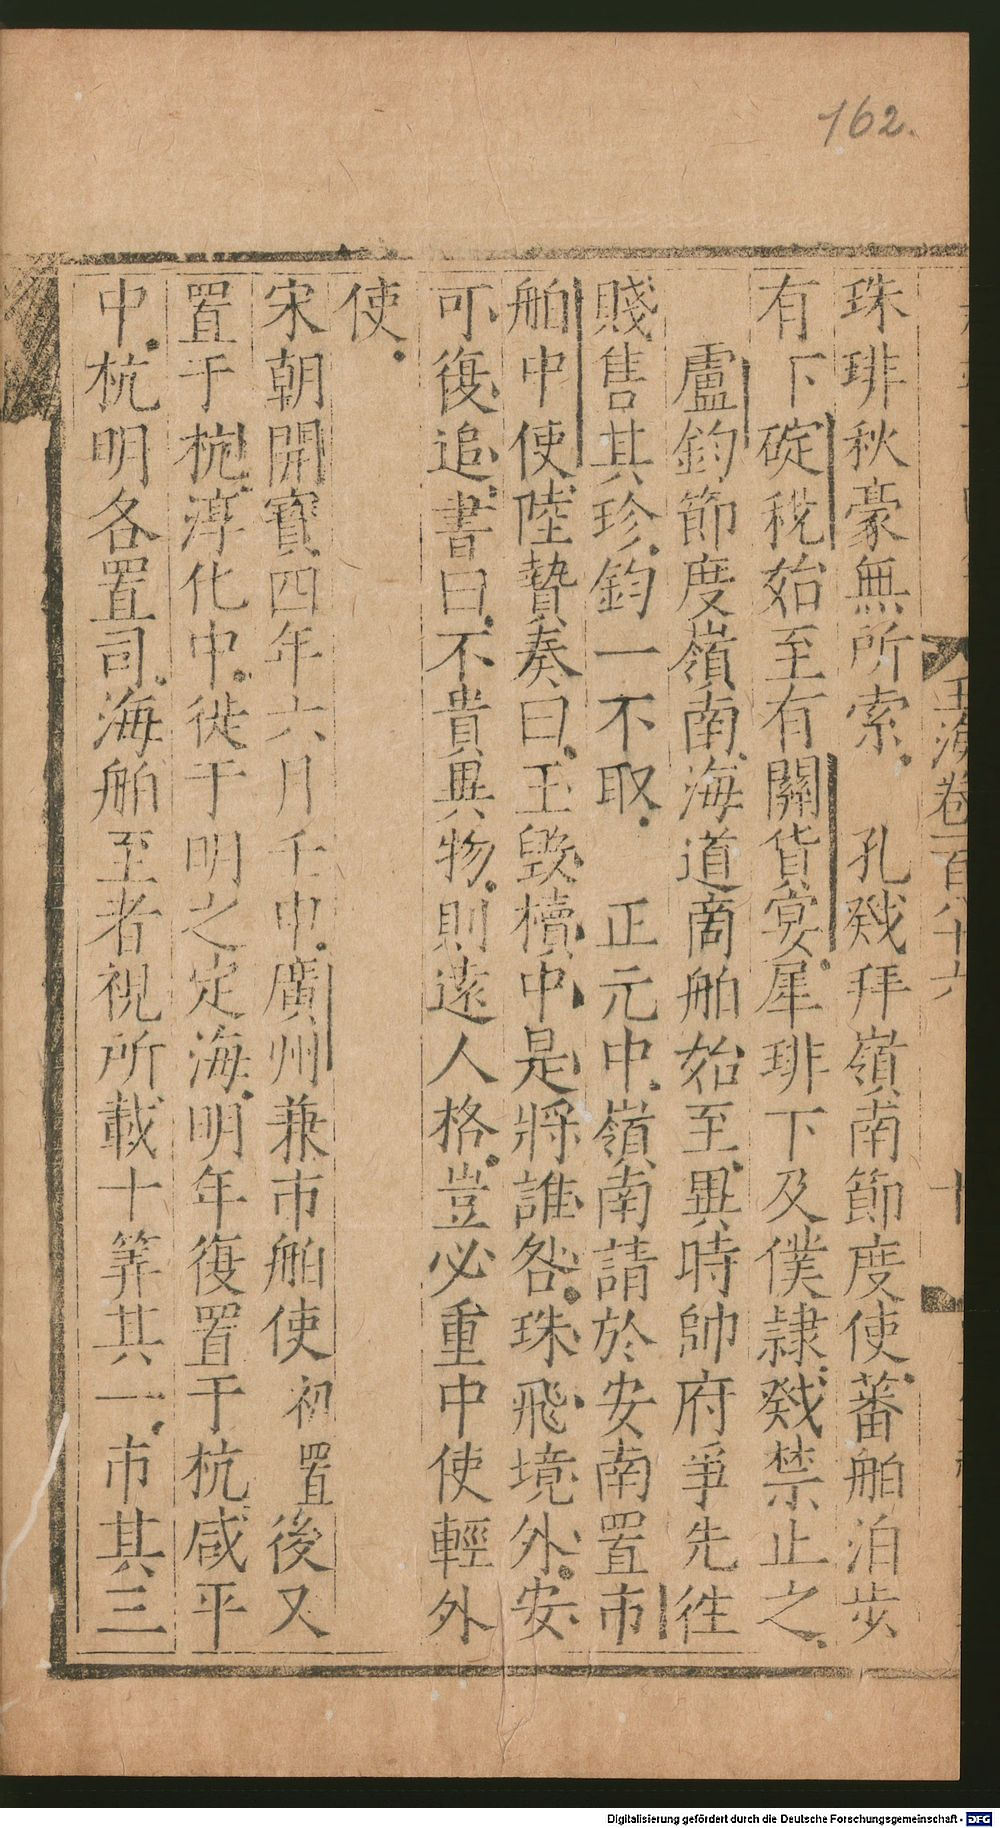 162.
玉海卷一百八十六
十
珠琲秋豪無所索孔戣拜嶺南節度使蕃舶泊步
有下碇稅始至有閱貨宴犀琲下及僕隷戣禁止之
盧鈞節度嶺南海道商舶始至異時帥府爭先徃
賤售其珍鈞一不取正元中嶺南請於安南置市
舶中使陸贄奏曰玉毁櫝中是將誰咎珠飛境外安
可復追書曰不貴異物則遠人格豈必重中使輕外
使
宋朝開寶四年六月壬申廣州兼市舶使初置後又
置于杭淳化中徙于明之定海明年復置于杭咸平
中杭明各置司海舶至者視所載十筭其一市其三
Digitalisierung gefördert durch die Deutsche Forschungsgemeinschaft - DFG